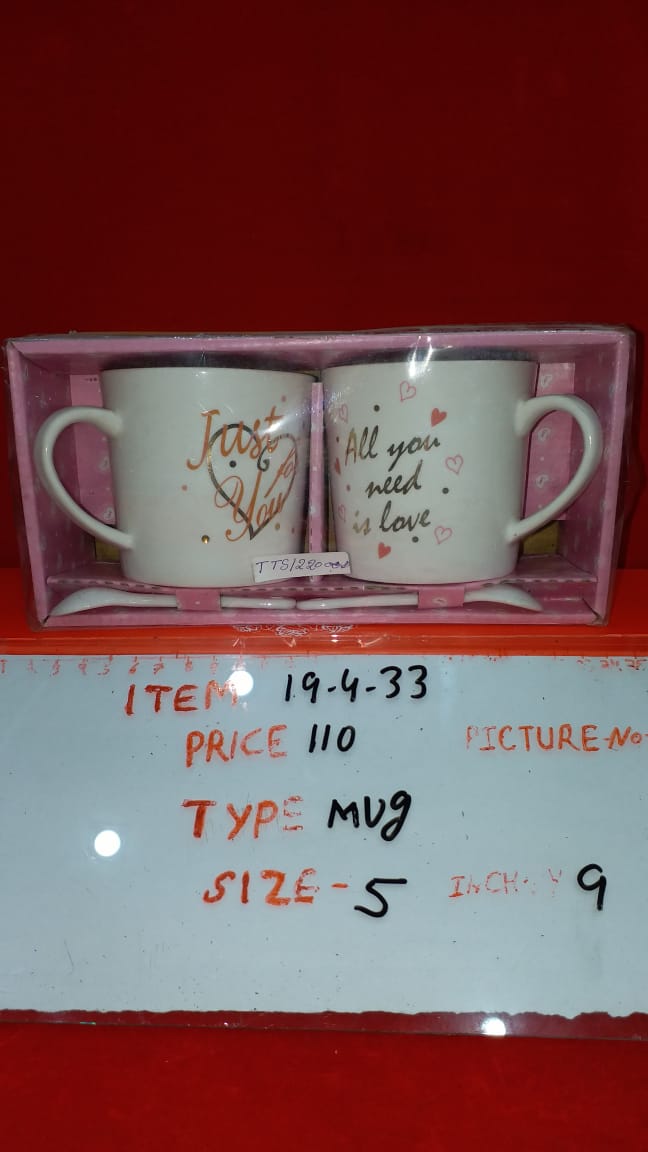 Just
You
All you
need
is love
ITEM 19-4-33
PRICE 110 PICTURE NO
TYPE MUg
SIZE - 5 INCH 9